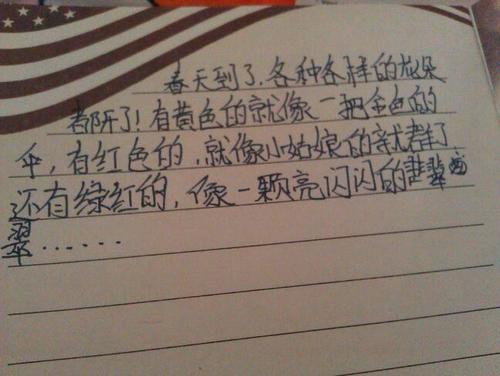 春天到了.各种各样的花朵
都开了!有黄色的就像一把金色的
伞,有红色的,就像小姑娘的
还有绿红的,像一颗亮闪闪的翡
翠......